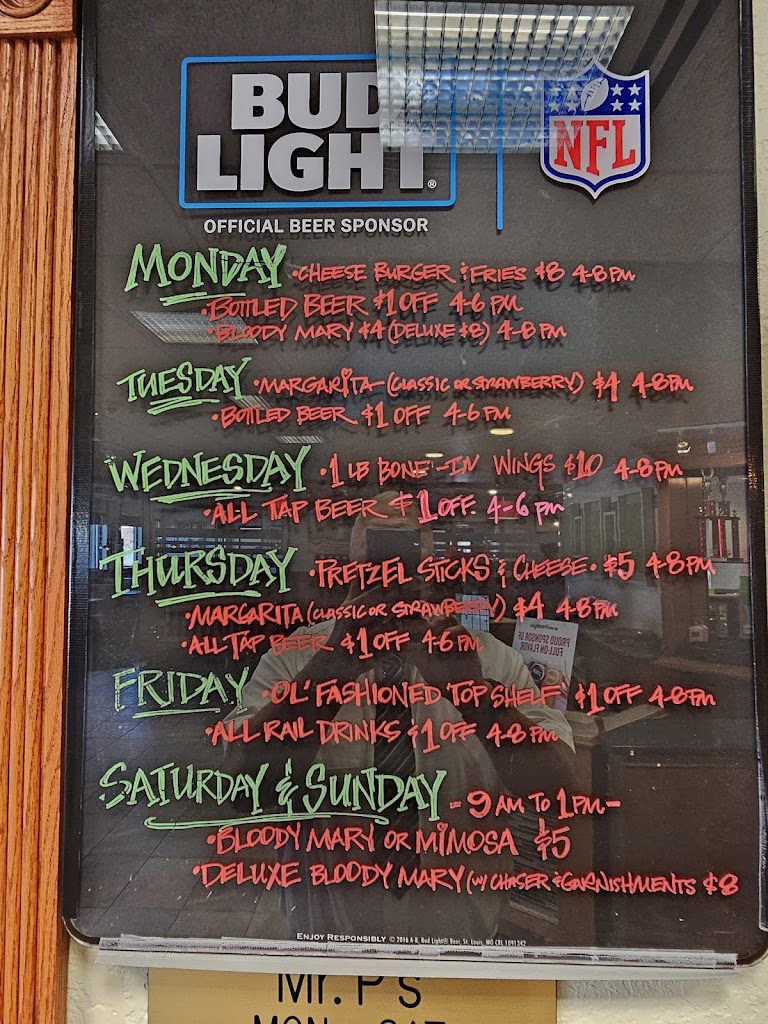 BUD
LIGHT®
NFL
OFFICIAL BEER SPONSOR
MONDAY • CHEESE BURGER & FRIES $8 4-8PM
• BOTTLED BEER $1 OFF 4-6 PM
• BLOODY MARY $4 (DELUXE $8) 4-8PM
TUESDAY • MARGARITA - (CLASSIC OR STRAWBERRY) $4 4-8PM
• BOTTLED BEER $1 OFF 4-6 PM
WEDNESDAY • 1 LB BONE-IN WINGS $10 4-8PM
• ALL TAP BEER $1 OFF 4-6 PM
THURSDAY • PRETZEL STICKS & CHEESE • $5 4-8PM
• MARGARITA (CLASSIC OR STRAWBERRY) $4 4-8PM
• ALL TAP BEER $1 OFF 4-6 PM
PROUD SPONSOR OF
FULL-ON FLAVOR
FRIDAY • OL' FASHIONED 'TOP SHELF' $1 OFF 4-8PM
• ALL RAIL DRINKS $1 OFF 4-8 PM
SATURDAY & SUNDAY - 9 AM TO 1PM -
• BLOODY MARY OR MIMOSA $5
• DELUXE BLOODY MARY (W/ CHASER & GARNISHMENTS $8
ENJOY RESPONSIBLY © 2016 A-B, Bud Light® Beer, St. Louis, MO CBL 1091242
Mr. P's
MON SAT